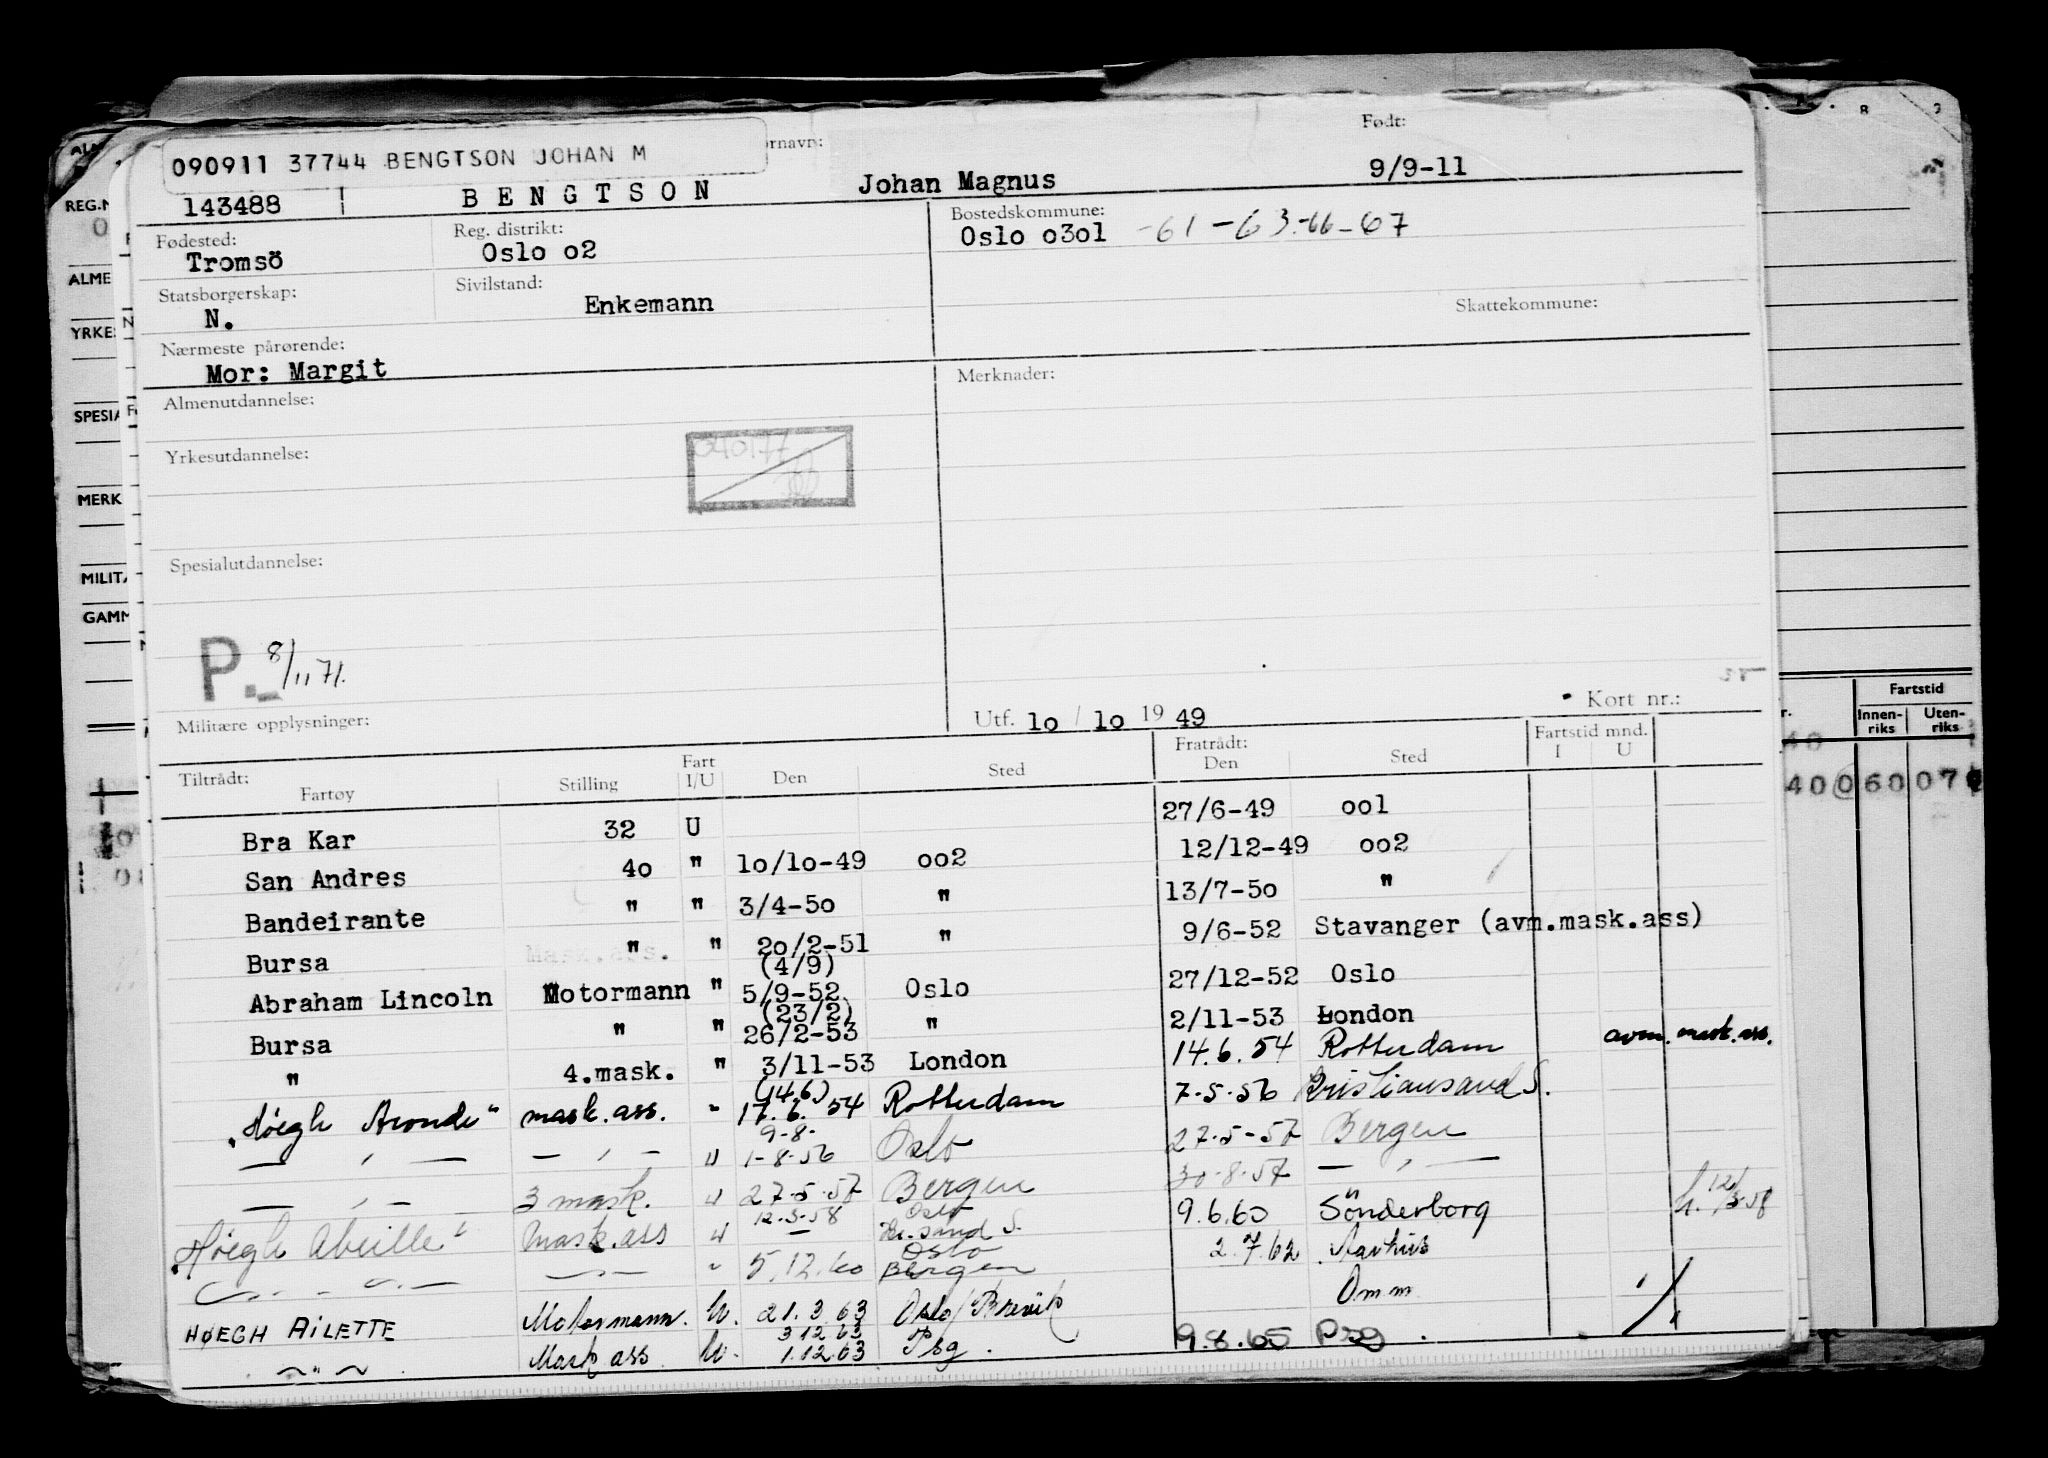 090911 37744 BENGTSON JOHAN M
ornavn:
Født:
143488 BENGTSON Johan Magnus 9/9-11
Fødested: Reg. distrikt: Bostedskommune:
Tromsö Oslo o2 Oslo o3o1 -61-63-66-67
Statsborgerskap: Sivilstand:
N. Enkemann Skattekommune:
Nærmeste pårørende:
Mor: Margit
Almenutdannelse: Merknader:
Yrkesutdannelse:
040177
Spesialutdannelse:
P. 8/11 71.
Militære opplysninger: Utf. 1o / 1o 19 49 Kort nr.:
Tiltrådt: Fart Fratrådt: Fartstid mnd.
Fartøy Stilling I/U Den Sted Den Sted I U
Bra Kar 32 U 27/6-49 oo1
San Andres 4o " 1o/1o-49 oo2 12/12-49 oo2
Bandeirante " " 3/4-5o " 13/7-5o "
Bursa " " 2o/2-51 " 9/6-52 Stavanger (avm.mask.ass)
(4/9)
Abraham Lincoln Motormann " 5/9-52 Oslo 27/12-52 Oslo
(23/2)
Bursa " " 26/2-53 " 2/11-53 London
" 4.mask. " 3/11-53 London 14.6.54 Rotterdam avm. mask. ass.
(14.6)
"Høegh Aronde" mask. ass. " 17.6.54 Rotterdam 7.5.56 Kristiansand S.
9-8-
— " — — " — " 1-8-56 Oslo 27-5-57 Bergen
— " — 3 mask. " 27-5-57 Bergen 30-8-57 — " —
12-3-58 Oslo
"Høegh Abeille" Mask. ass " — Kr. sand S. 9.6.60 Sönderborg h. 12/3-58
Oslo
— " — — " — " 5.12.60 Bergen 2.7.62 Aarhus
HØEGH AiLETTE Motormann. U. 21.3.63 Oslo/Brevik Omm
3.12.63
— " — Mask ass. U. 1.12.63 Psg. 9.8.65 Psg.
REG.N
ALME
YRKE
SPESIA
MERK
MILITÆ
GAMM
Fartstid
Innen-riks Uten-riks
400 60 07